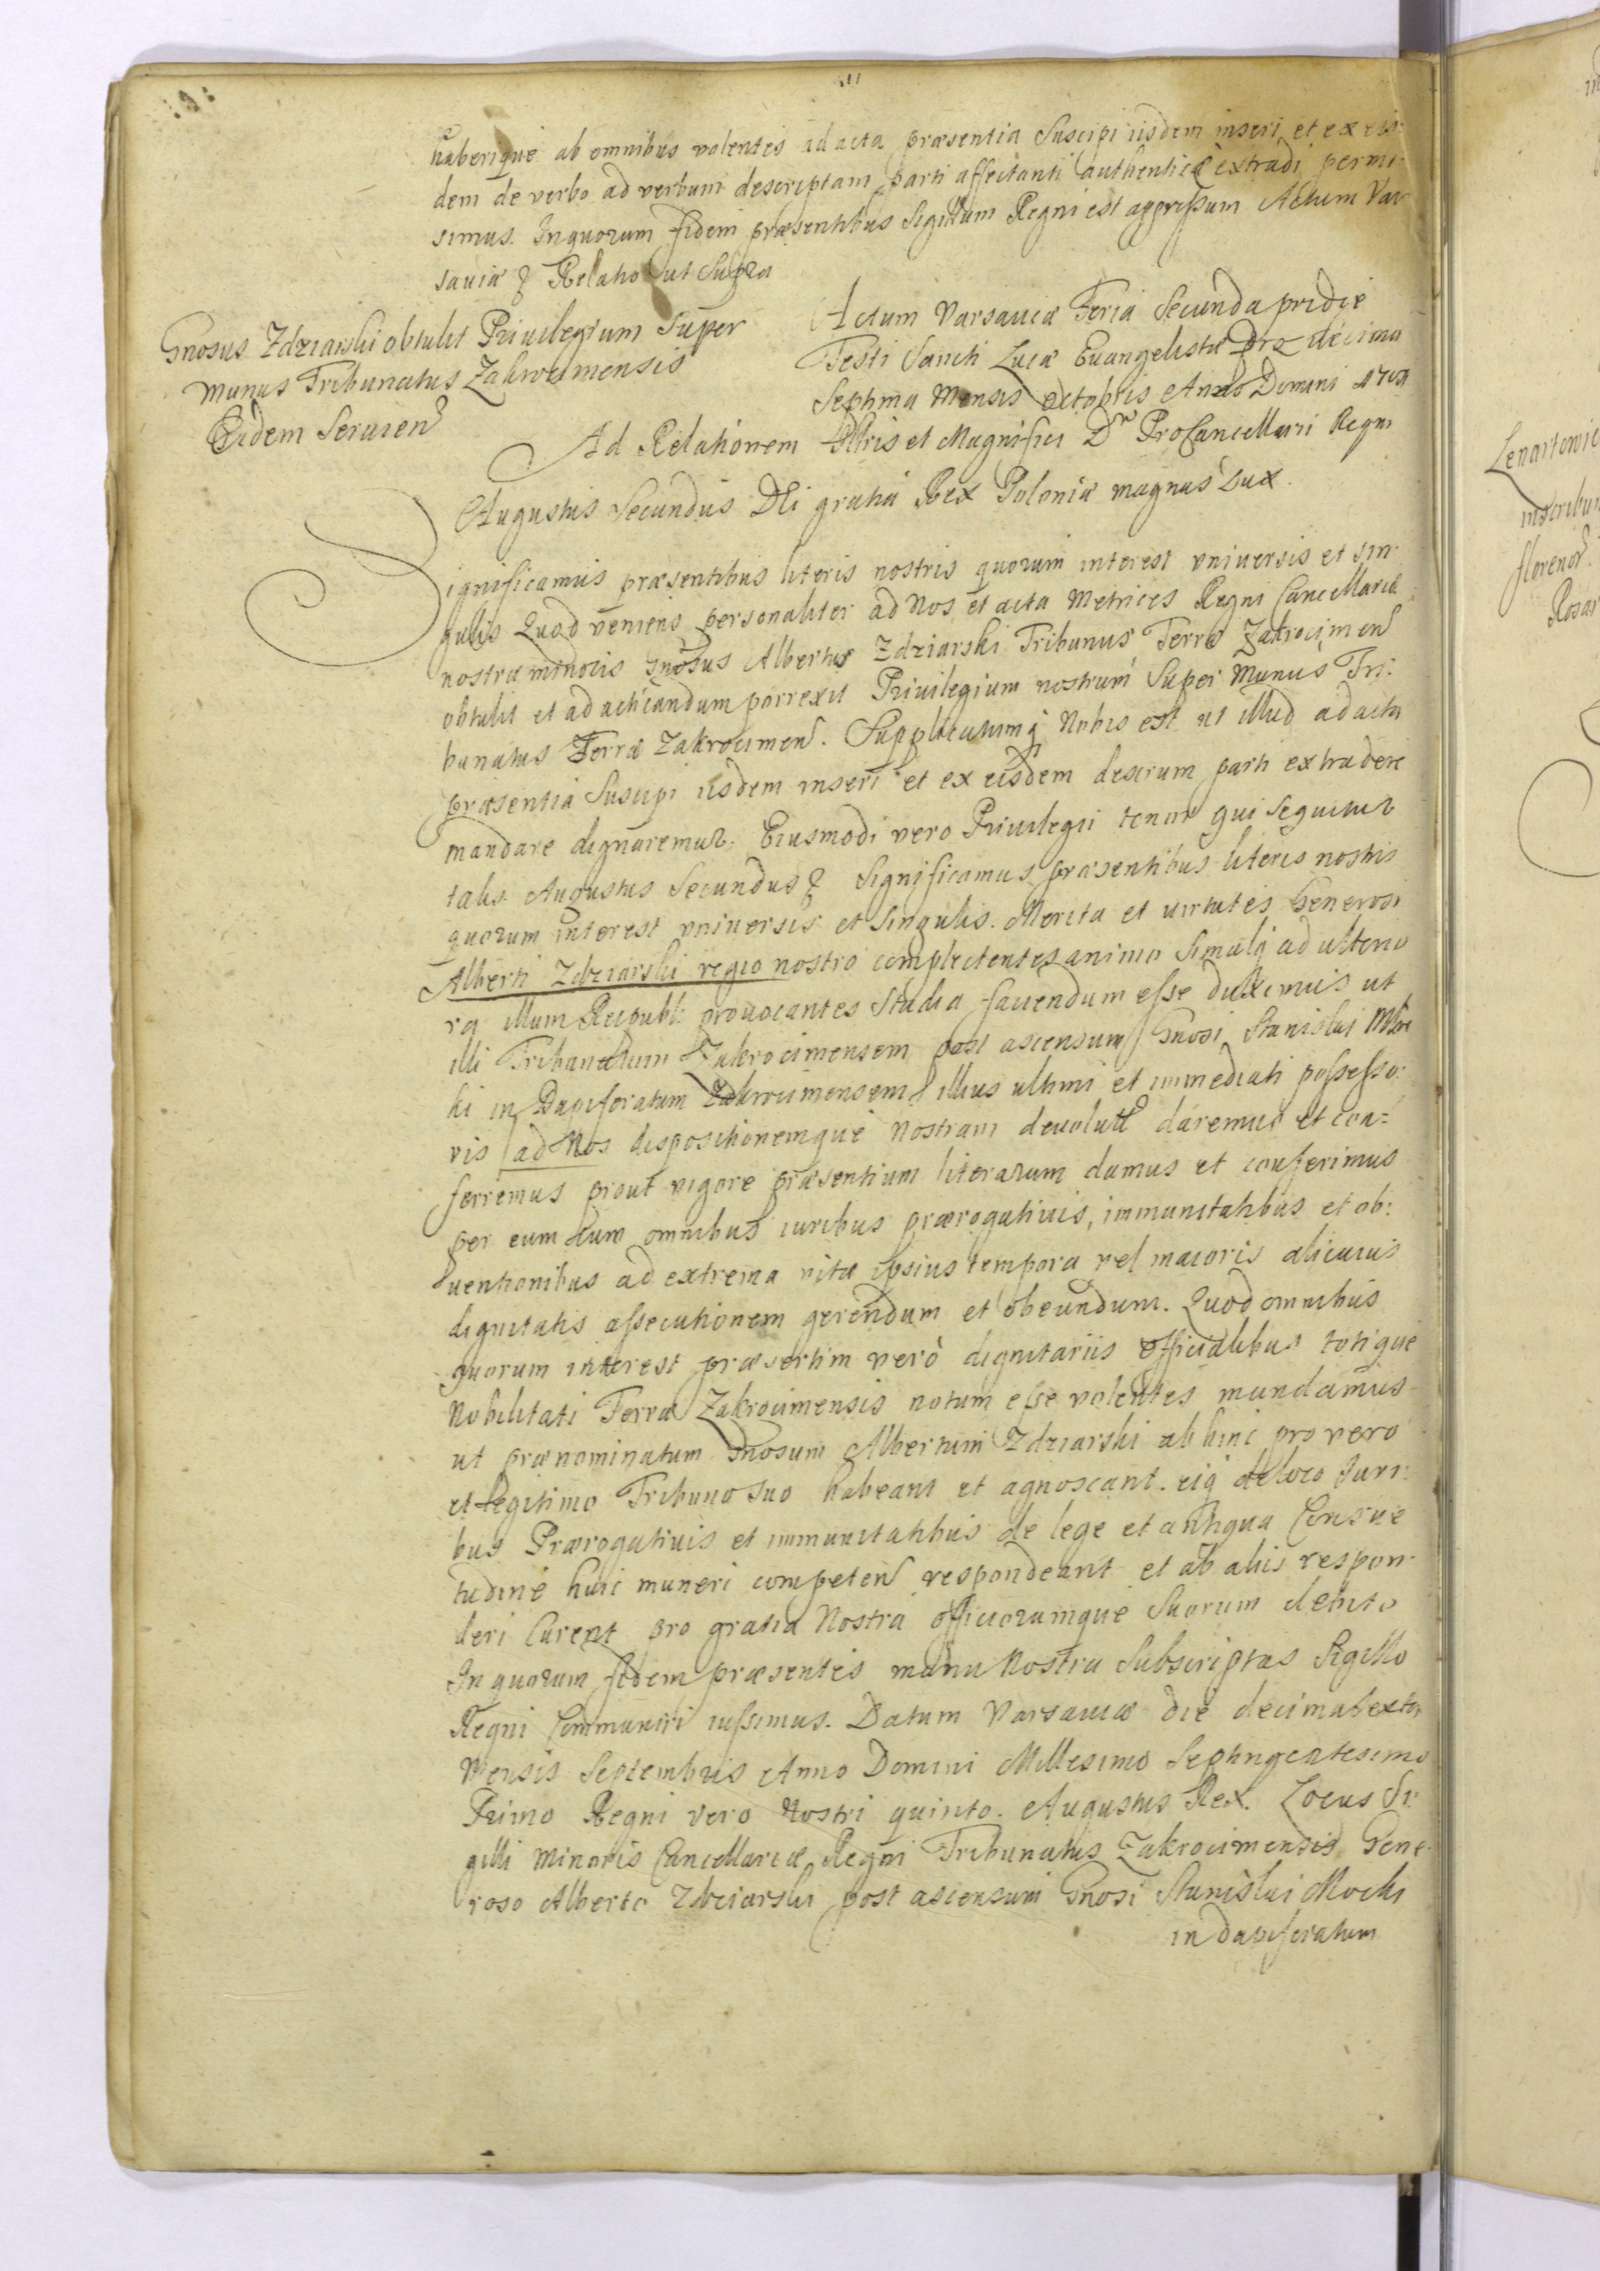 haberique ab omnibus volentes ad acta præsentia Suscipi iisdem inseri et ex eis:
dem de verbo ad verbum descriptam parti affectanti authenticè extradi permi:
simus. In quorum fidem præsentibus Sigillum Regni est appressum Actum Var
saviæ Relatio ut Supra
Gnosus Zdziarski obtulit Privilegium Super
munus Tribunatus Zakrocimensis
Eidem Servien
Actum Varsaviæ Feria Secunda pridie
Festi Sancti Lucæ Evangelistæ die decima
Septima Mensis Octobris Anno Domini 1701
Ad Relationem Illris et Magnifici Dni ProCancellarii Regni
Augustus Secundus DEi gratia Rex Poloniæ magnus Dux.
Significamus præsentibus literis nostris quorum interest universis et sin:
gulis Quod veniens personaliter ad Nos et acta Metrices Regni Cancellariæ
nostræ minoris Gnosus Albertus Zdziarski Tribunus Terræ Zakrocimen
obtulit et ad acticandum porrexit Privilegium nostrum Super Munus Tri:
bunatus Terræ Zakrocimen. Supplicatumq Nobis est ut illud ad acta
præsentia Suscipi iisdem inseri et ex eisdem descrium parti extradere
mandare dignaremur. Eiusmodi vero Privilegii tenor qui Sequitur
talis Augustus Secundus Significamus præsentibus literis nostris
quorum interest universis et Singulis. Merita et virtutes Generosi
Alberti Zdziarski regio nostro complectentes animo Simulq ad ulterio
ra illum Reipubl: provocantes Studia favendum esse duximus ut
illi Tribunatum Zakrocimensem post ascensum Gnosi Stanislai Moc
ki in Dapiferatum Zakrocimensem illius ultimi et immediati possesso:
ris ad Nos dispositionemque Nostram devolut daremus et con:
ferremus prout vigore præsentium literarum damus et conferimus
per eum cum omnibus iuribus prærogativis, immunitatibus et ob:
ventionibus ad extrema vitæ ipsius tempora vel maioris alicuius
dignitatis assecutionem gerendum et obeundum. Quod omnibus
quorum interest præsertim verò dignitariis Officialibus totique
Nobilitati Terræ Zakrocimensis notum esse volentes mandamus
ut prænominatum Gnosum Albertum Zdziarski ab hinc pro vero
et legitimo Tribuno Suo habeant et agnoscant. eiq de loco Juri:
bus Prærogativis et immunitatibus de lege et antiqua Consue
tudine huic muneri competen respondeant et ab aliis respon:
deri Curent pro gratia Nostra officiorumque Suorum debito
In quorum fidem præsentes manu Nostra Subscriptas Sigillo
Regni Communiri iussimus. Datum Varsaviæ die decima sexta
Mensis Septembris Anno Domini Millesimo Septingentesimo
Primo Regni vero Nostri quinto. Augustus Rex. Locus Si:
gilli Minoris Cancellariæ Regni Tribunatus Zakrocimensis Gene
roso Alberto Zdziarski post ascensum Gnosi Stanislai Mocki
in dapiferatum
Lenartowic
inscribun
floreno